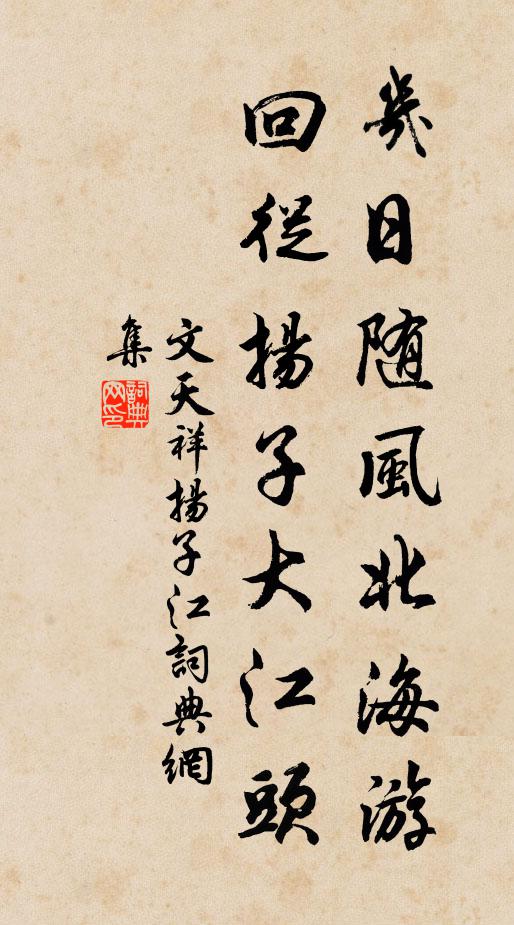 幾日随風北海游
回從揚子大江頭
文天祥揚子江詞典網
集
詞典
网印